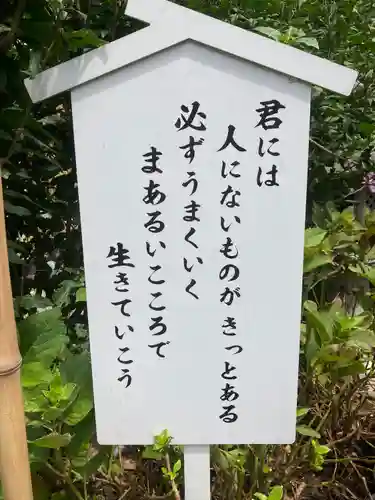 君には
人にないものがきっとある
必ずうまくいく
まあるいこころで
生きていこう